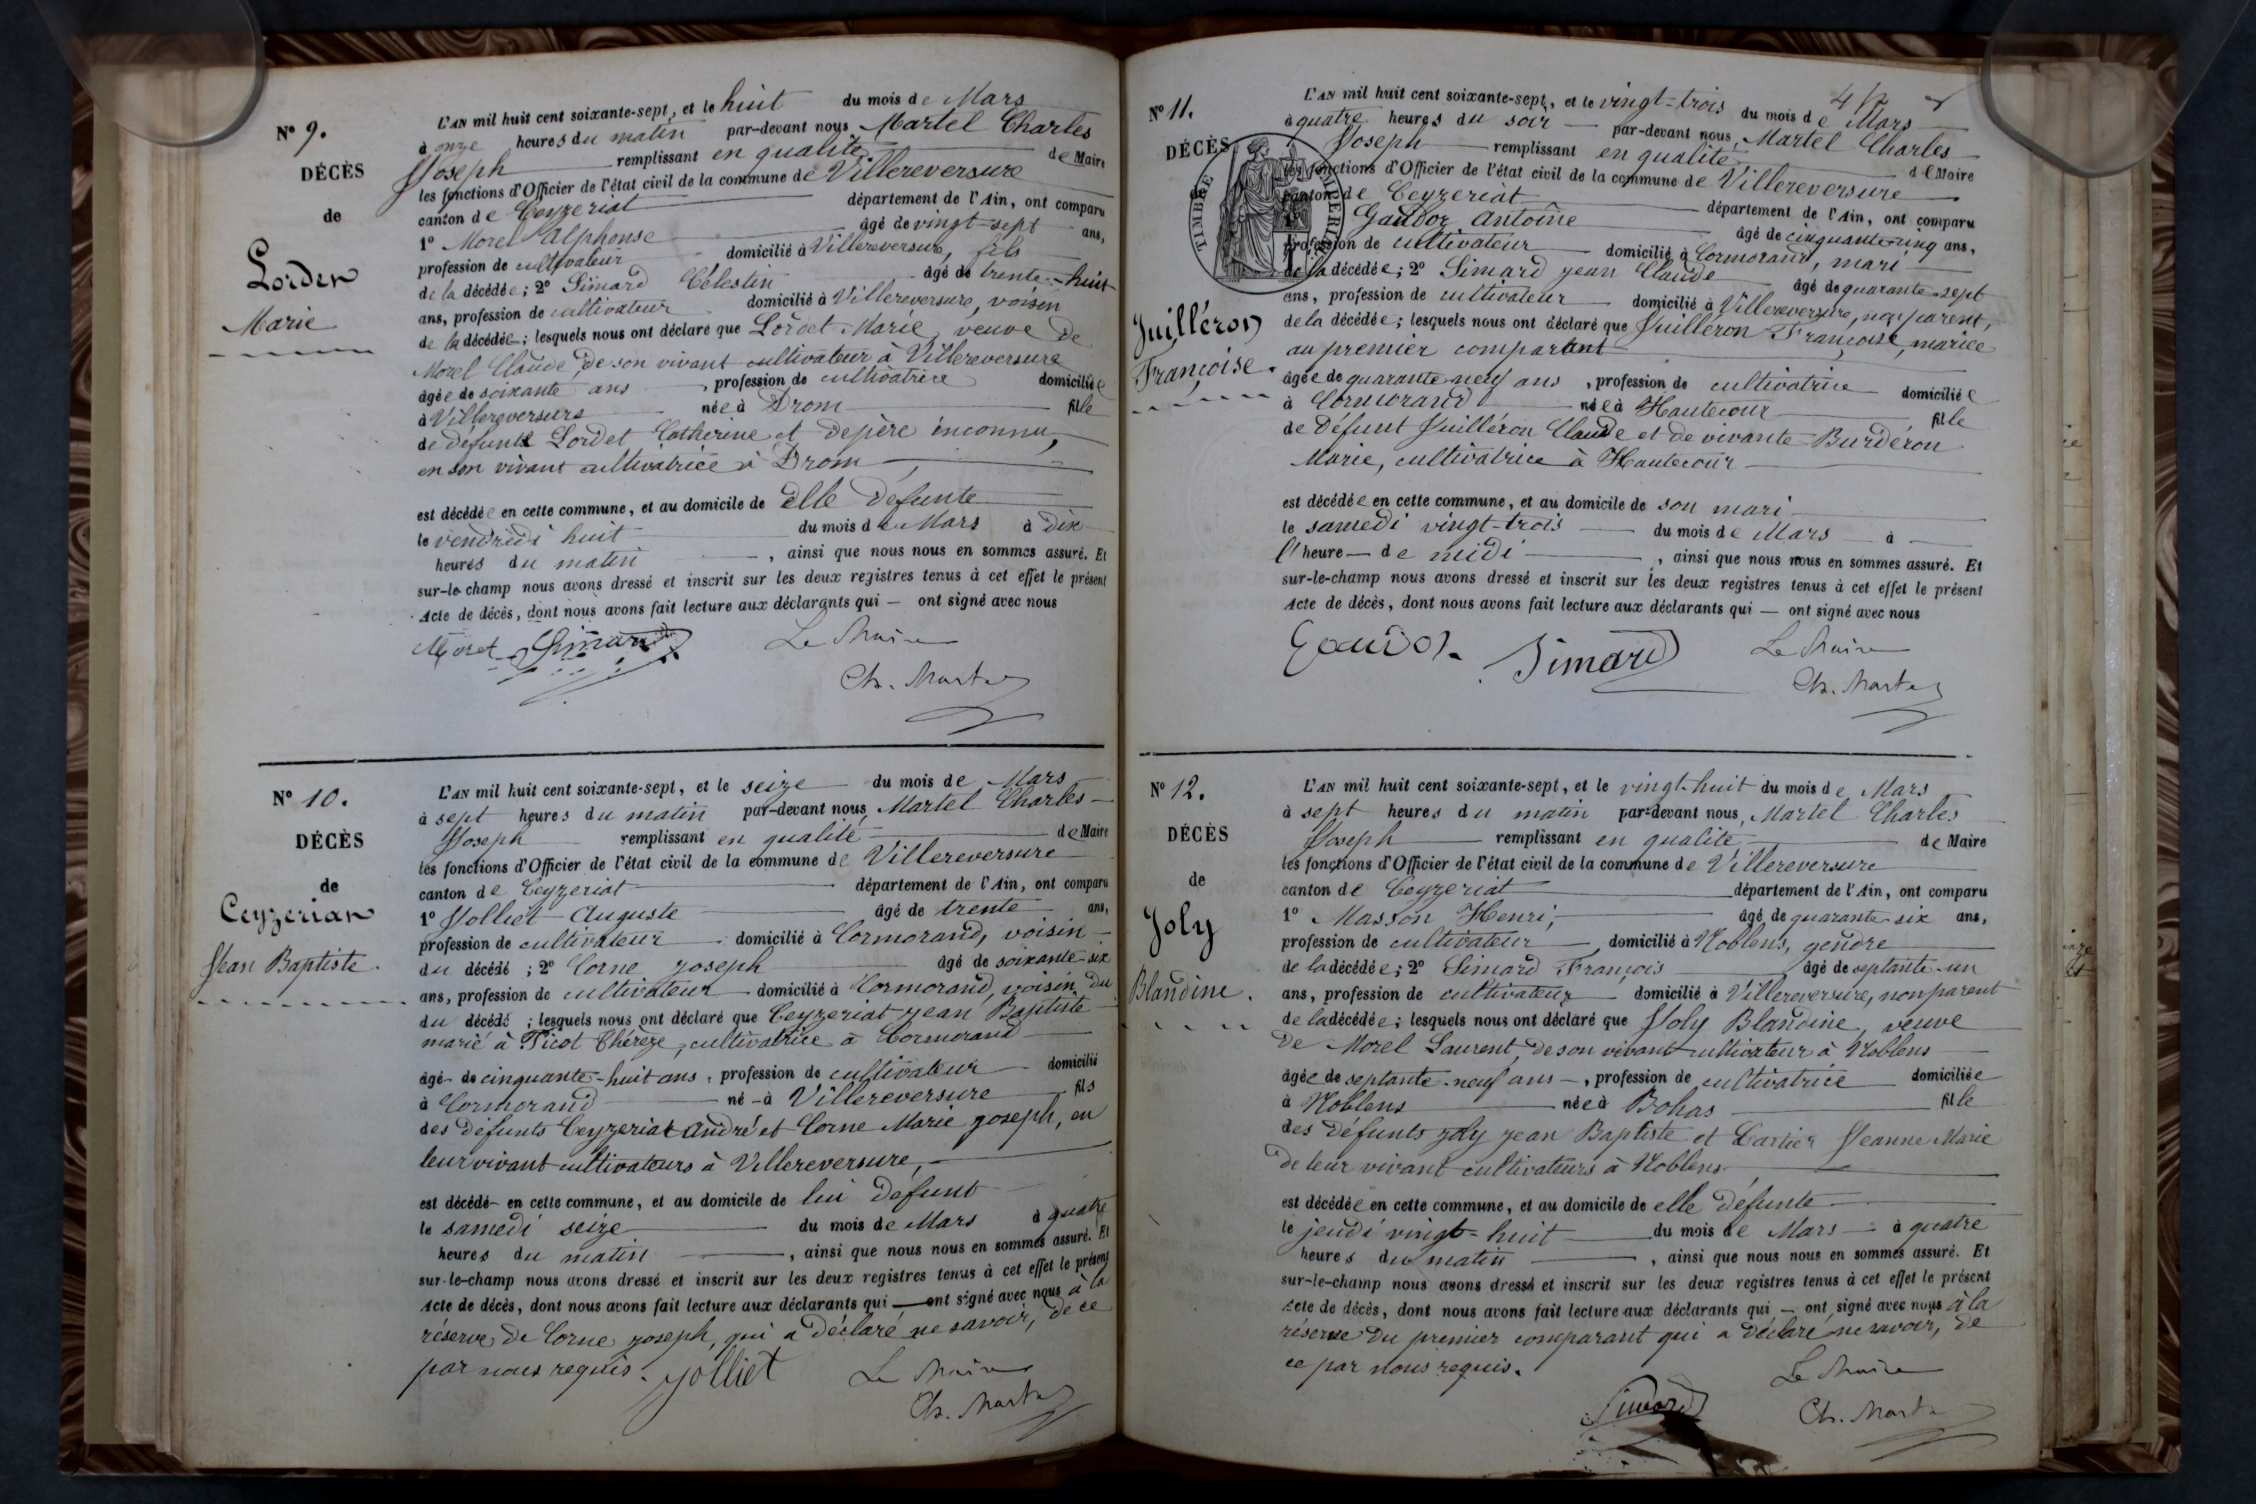 N° 9.
DÉCÈS
de
Lordet
Marie
L'AN mil huit cent soixante-sept, et le huit du mois de Mars
à onze heures du matin par-devant nous, Martel Charles
Joseph remplissant en qualité de Maire
les fonctions d'Officier de l'état civil de la commune de Villereversure
canton de Ceyzeriat département de l'Ain, ont comparu
1° Morel Alphonse âgé de vingt-sept ans,
profession de cultivateur domicilié à Villereversure, fils
de la décédée; 2° Simard Célestin âgé de trente-huit
ans, profession de cultivateur domicilié à Villereversure, voisin
de la décédée; lesquels nous ont déclaré que Lordet Marie, veuve de
Morel Claude, de son vivant cultivateur à Villereversure
âgée de soixante ans, profession de cultivatrice domiciliée
à Villereversure née à Drom fille
de défunte Lordet Catherine et de père inconnu,
en son vivant cultivatrice à Drom
est décédée en cette commune, et au domicile de elle défunte
le vendredi huit du mois de Mars à dix
heures du matin, ainsi que nous nous en sommes assuré. Et
sur-le-champ nous avons dressé et inscrit sur les deux registres tenus à cet effet le présent
Acte de décès, dont nous avons fait lecture aux déclarants qui — ont signé avec nous
Morel Simard Le Maire
Ch. Martel
N° 10.
DÉCÈS
de
Ceyzeriat
Jean Baptiste.
L'AN mil huit cent soixante-sept, et le seize du mois de Mars
à sept heures du matin par-devant nous, Martel Charles
Joseph remplissant en qualité de Maire
les fonctions d'Officier de l'état civil de la commune de Villereversure
canton de Ceyzeriat département de l'Ain, ont comparu
1° Jolliet Auguste âgé de trente ans,
profession de cultivateur domicilié à Cormorand, voisin
du décédé; 2° Corne Joseph âgé de soixante-six
ans, profession de cultivateur domicilié à Cormorand, voisin du
du décédé; lesquels nous ont déclaré que Ceyzeriat Jean Baptiste
marié à Picot Thérèze, cultivatrice à Cormorand
âgé de cinquante-huit ans, profession de cultivateur domicilié
à Cormorand né à Villereversure fils
des défunts Ceyzeriat André et Corne Marie Joseph, en
leur vivant cultivateurs à Villereversure,
est décédé en cette commune, et au domicile de lui défunt
le samedi seize du mois de Mars à quatre
heures du matin, ainsi que nous nous en sommes assuré. Et
sur-le-champ nous avons dressé et inscrit sur les deux registres tenus à cet effet le présent
Acte de décès, dont nous avons fait lecture aux déclarants qui — ont signé avec nous à la
réserve de Corne Joseph, qui a déclaré ne savoir, de ce
par nous requis. Jolliet Le Maire
Ch. Martel
N° 11.
DÉCÈS
de
TIMBRE IMPERIAL
Juilléron
Françoise.
L'AN mil huit cent soixante-sept, et le vingt-trois du mois de Mars
à quatre heures du soir par-devant nous, Martel Charles
Joseph remplissant en qualité de Maire
les fonctions d'Officier de l'état civil de la commune de Villereversure
canton de Ceyzeriat département de l'Ain, ont comparu
1° Gaudoz Antoine âgé de cinquante-cinq ans,
profession de cultivateur domicilié à Cormorand, mari
de la décédée; 2° Simard Jean Claude âgé de quarante-sept
ans, profession de cultivateur domicilié à Villereversure, non parent,
de la décédée; lesquels nous ont déclaré que Juilléron Françoise, mariée
au premier comparant
âgée de quarante neuf ans, profession de cultivatrice domiciliée
à Cormorand née à Hautecour fille
de défunt Juilléron Claude et de vivante Burdéron
Marie, cultivatrice à Hautecour
est décédée en cette commune, et au domicile de son mari
le samedi vingt-trois du mois de Mars à
l'heure de midi, ainsi que nous nous en sommes assuré. Et
sur-le-champ nous avons dressé et inscrit sur les deux registres tenus à cet effet le présent
Acte de décès, dont nous avons fait lecture aux déclarants qui — ont signé avec nous
Gaudoz Simard Le Maire
Ch. Martel
N° 12.
DÉCÈS
de
Joly
Blandine.
L'AN mil huit cent soixante-sept, et le vingt-huit du mois de Mars
à sept heures du matin par-devant nous, Martel Charles
Joseph remplissant en qualité de Maire
les fonctions d'Officier de l'état civil de la commune de Villereversure
canton de Ceyzeriat département de l'Ain, ont comparu
1° Masson Henri, âgé de quarante-six ans,
profession de cultivateur domicilié à Noblens, gendre
de la décédée; 2° Simard François âgé de septante-un
ans, profession de cultivateur domicilié à Villereversure, non parent
de la décédée; lesquels nous ont déclaré que Joly Blandine, veuve
de Morel Laurent, de son vivant cultivateur à Noblens
âgée de septante-neuf ans, profession de cultivatrice domiciliée
à Noblens née à Bohas fille
des défunts Joly Jean Baptiste et Cartier Jeanne Marie
de leur vivant cultivateurs à Noblens
est décédée en cette commune, et au domicile de elle défunte
le jeudi vingt-huit du mois de Mars à quatre
heures du matin, ainsi que nous nous en sommes assuré. Et
sur-le-champ nous avons dressé et inscrit sur les deux registres tenus à cet effet le présent
Acte de décès, dont nous avons fait lecture aux déclarants qui — ont signé avec nous à la
réserve du premier comparant qui a déclaré ne savoir, de
ce par nous requis.
Simard Le Maire
Ch. Martel